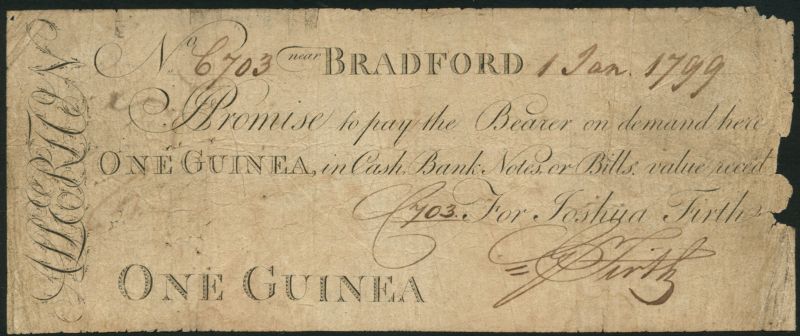 ALLERTHEN
No C703 near BRADFORD 1 Jan. 1799
I Promise to pay the Bearer on demand here
ONE GUINEA, in Cash, Bank Notes, or Bills, value reced
C703. For Joshua Firth
Firth
ONE GUINEA